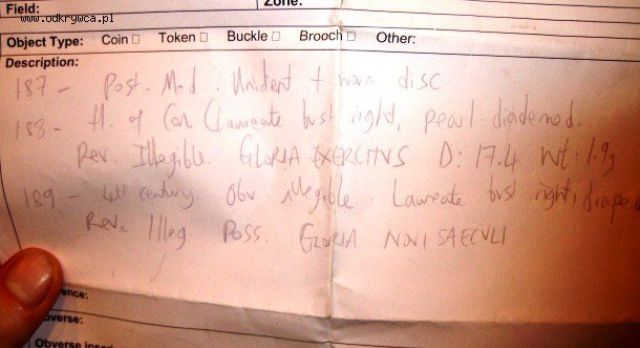 www.odkrywca.pl
Field: Zone:
Object Type: Coin Token Buckle Brooch Other:
Description:
187 - Post. Med. Unident disc
188 - H. of Con (Laureate bust right, pearl-diademed.
Rev. Illegible. GLORIA EXERCITVS D: 17.4 Wt: 1.9g
189 - 4th century. Obv. illegible. Laureate bust right, drape
Rev. Illeg. Poss. GLORIA NOVI SAECVLI
ence:
bverse:
Obverse inscri